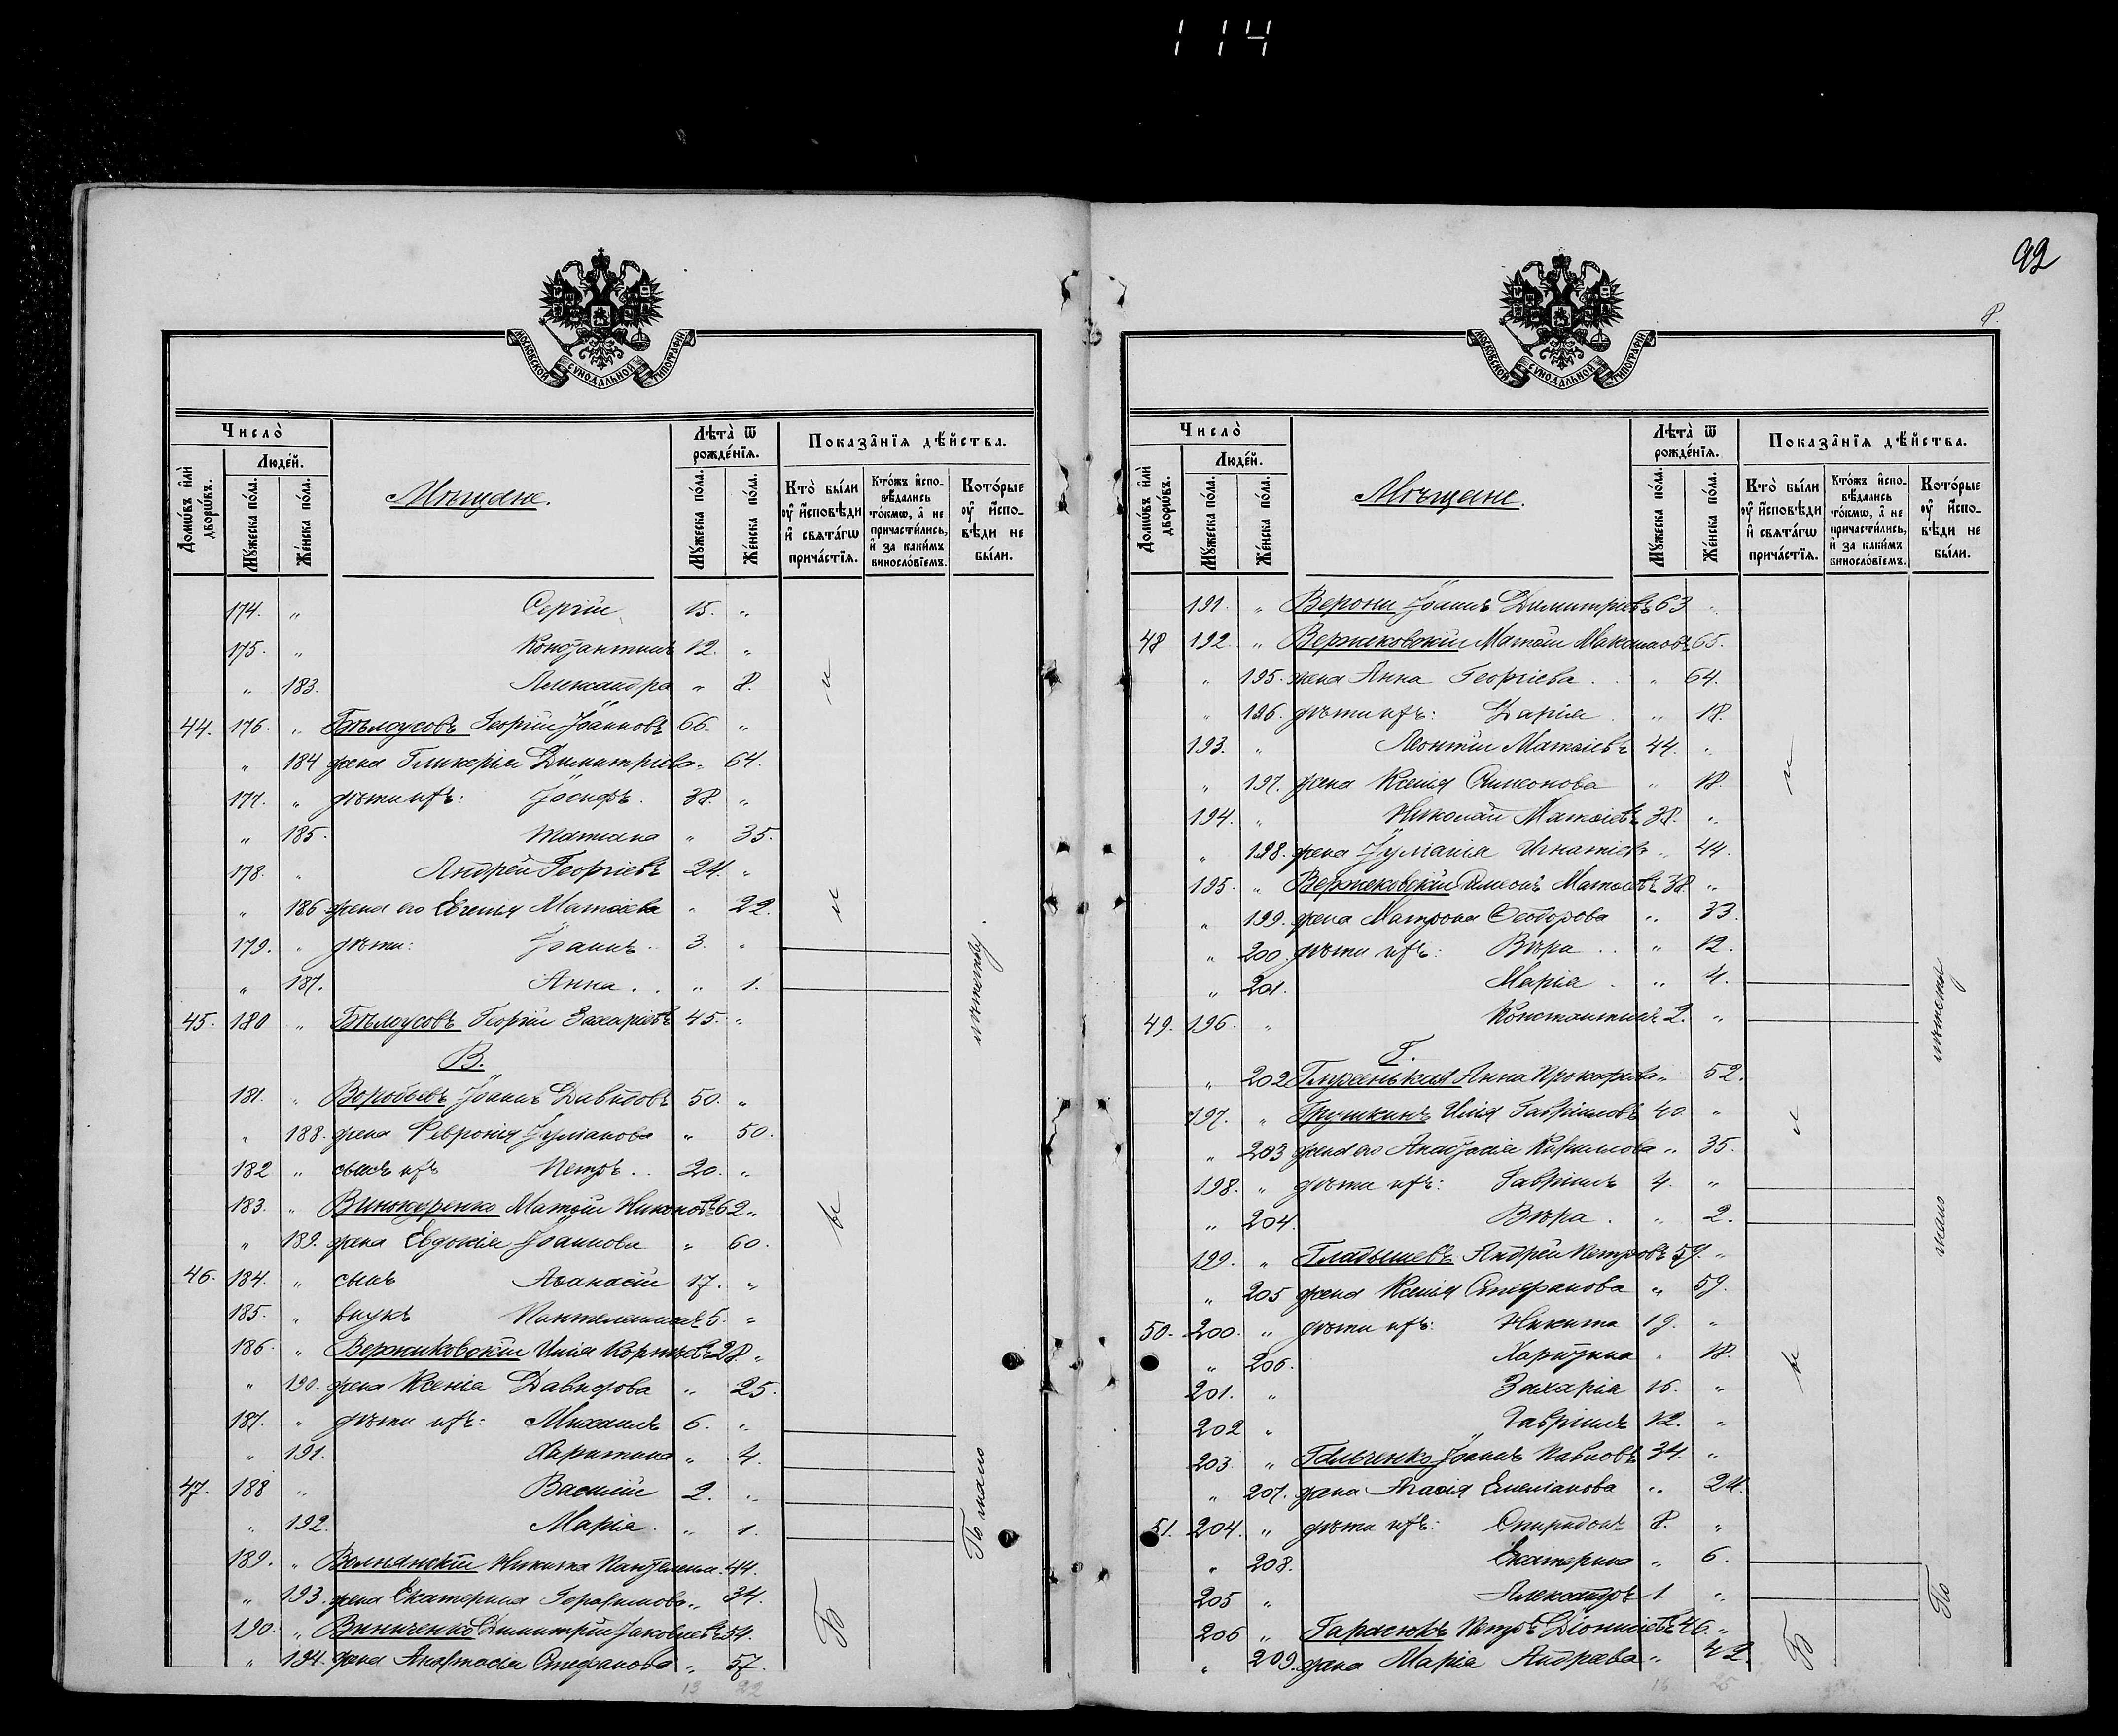 114
92
МОСКОВСКОЙ СѴНОДАЛЬНОЙ ТИПОГРАФІИ
Число̀
Людéй.
Домѡ́въ и҆лѝ дворѡ́въ.
Мꙋ́жеска по́ла.
Же́нска по́ла.
Мѣщане.
Лѣта̀ ѿ рожде́нїѧ.
Мꙋ́жеска по́ла.
Же́нска по́ла.
Показа̑нїѧ дѣ́йства.
Кто̀ бы́ли ᲂу҆ и҆сповѣ́ди и҆ свѧта́гѡ прича́стїѧ.
Кто́жъ и҆спо-вѣ́дались то́кмѡ, а҆ не причасти́лись, и҆ за каки́мъ винослóвїемъ.
Кото́рые ᲂу҆ и҆спо-вѣ́ди не бы́ли.
174. " Сергій 15. "
175. " Константинъ 12. "
" 183. Александра " 8.
44. 176. " Бѣлоусовъ Георгій Іоанновъ 66. "
" 184 жена Гликерія Димитріева " 64.
177. " дѣти ихъ: Іосифъ. 38. "
" 185. Татіана " 35.
178. " Андрей Георгіевъ 24. "
" 186 жена его Евгенія Матѳіева " 22.
179. " дѣти: Іоаннъ. 3. "
" 187. Анна. " 1.
45. 180 " Бѣлоусовъ Георгій Захаріевъ 45. "
В.
181. " Воробьевъ Іоаннъ Давидовъ 50. "
" 188. жена Февронія Іуліанова " 50.
182 " сынъ ихъ Петръ.. 20. "
183. " Винокуренко Матѳій Никоновъ 62 "
" 189. жена Евдокія Іоаннова " 60.
46. 184. " сынъ Аѳанасій 17. "
185. " внукъ Пантелеимонъ 5. "
186. " Вержиковскій Илія Корніевъ 28. "
" 190. жена Ксенія Давидова " 25.
187. " дѣти ихъ: Михаилъ 6. "
" 191. Харитина " 4.
47. 188 " Василій 2. "
" 192. Марія. " 1.
189. " Волнянскій Никита Пантелеим. 44.
" 193. жена Екатерина Герасимова " 34.
190. " Винниченко Димитрій Іаковлевъ 54.
" 194. жена Анастасія Стефанова " 57.
13 22
Б
ы
и
и
По мало
лѣтству.
МОСКОВСКОЙ СѴНОДАЛЬНОЙ ТИПОГРАФІИ
Число̀
Людéй.
Домѡ́въ и҆лѝ дворѡ́въ.
Мꙋ́жеска по́ла.
Же́нска по́ла.
Мѣщане.
Лѣта̀ ѿ рожде́нїѧ.
Мꙋ́жеска по́ла.
Же́нска по́ла.
Показа̑нїѧ дѣ́йства.
Кто̀ бы́ли ᲂу҆ и҆сповѣ́ди и҆ свѧта́гѡ прича́стїѧ.
Кто́жъ и҆спо-вѣ́дались то́кмѡ, а҆ не причасти́лись, и҆ за каки́мъ винослóвїемъ.
Кото́рые ᲂу҆ и҆спо-вѣ́ди не бы́ли.
191. " Верони Іоаннъ Димитріевъ 63 "
48 192 " Вержиковскій Матѳій Максимовъ 65.
" 195. жена Анна Георгіева. " 64.
" 196. дѣти ихъ: Дарія " 18.
193. " Леонтій Матѳіевъ 44. "
" 197. жена Ксенія Симеонова " 18.
194. " Николай Матѳіевъ 38. "
" 198. жена Іуліанія Игнатіев. " 44.
195. " Вержековскій Симеонъ Матѳіевъ 38. "
" 199. жена Матрона Ѳеодорова " 33.
" 200. дѣти ихъ: Вѣра.. " 12.
" 201. Марія. " 4.
49. 196. " Константинъ 2. "
Г.
" 202 Глуженькая Анна Прокофіева " 52.
197. " Грушкинъ Илія Гавріиловъ 40 "
" 203 жена его Анастасія Кириллова " 35.
198. " дѣти ихъ: Гавріилъ 4. "
" 204. Вѣра. " 2.
199. " Гладышевъ Андрей Петровъ 59. "
" 205 жена Ксенія Стефанова " 59.
50. 200. " дѣти ихъ: Никита 19. "
" 206. Харитина " 18.
201. " Захарія 16. "
202 " Гавріилъ 12. "
203. " Гальченко Іоаннъ Павловъ 34. "
" 207. жена Агаѳія Емеліанова " 24.
51. 204. " дѣти ихъ: Спиридонъ 8. "
" 208. Екатерина " 6.
205 " Александръ 1 "
206 " Гарасюкъ Петръ Діонисіевъ 46. "
" 209. жена Марія Андреева " 42
16 25
Б
ы
и
и
По
мало
лѣтству